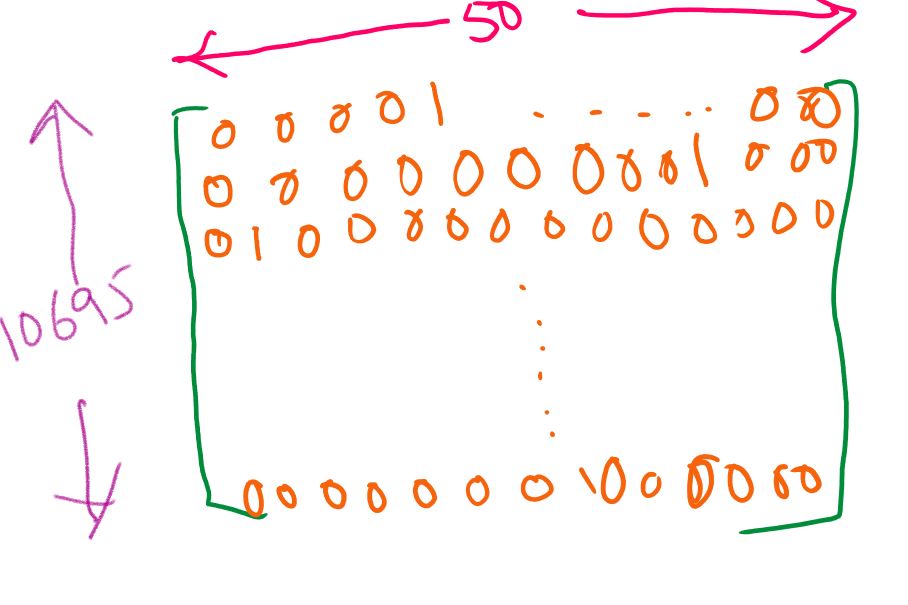 50
0 0 0 0 1 . . . . . 0 0 0
0 0 0 0 0 0 0 0 0 1 0 0 0
0 1 0 0 0 0 0 0 0 0 0 0 0 0
10695
.
.
.
.
.
.
0 0 0 0 0 0 0 1 0 0 0 0 0 0